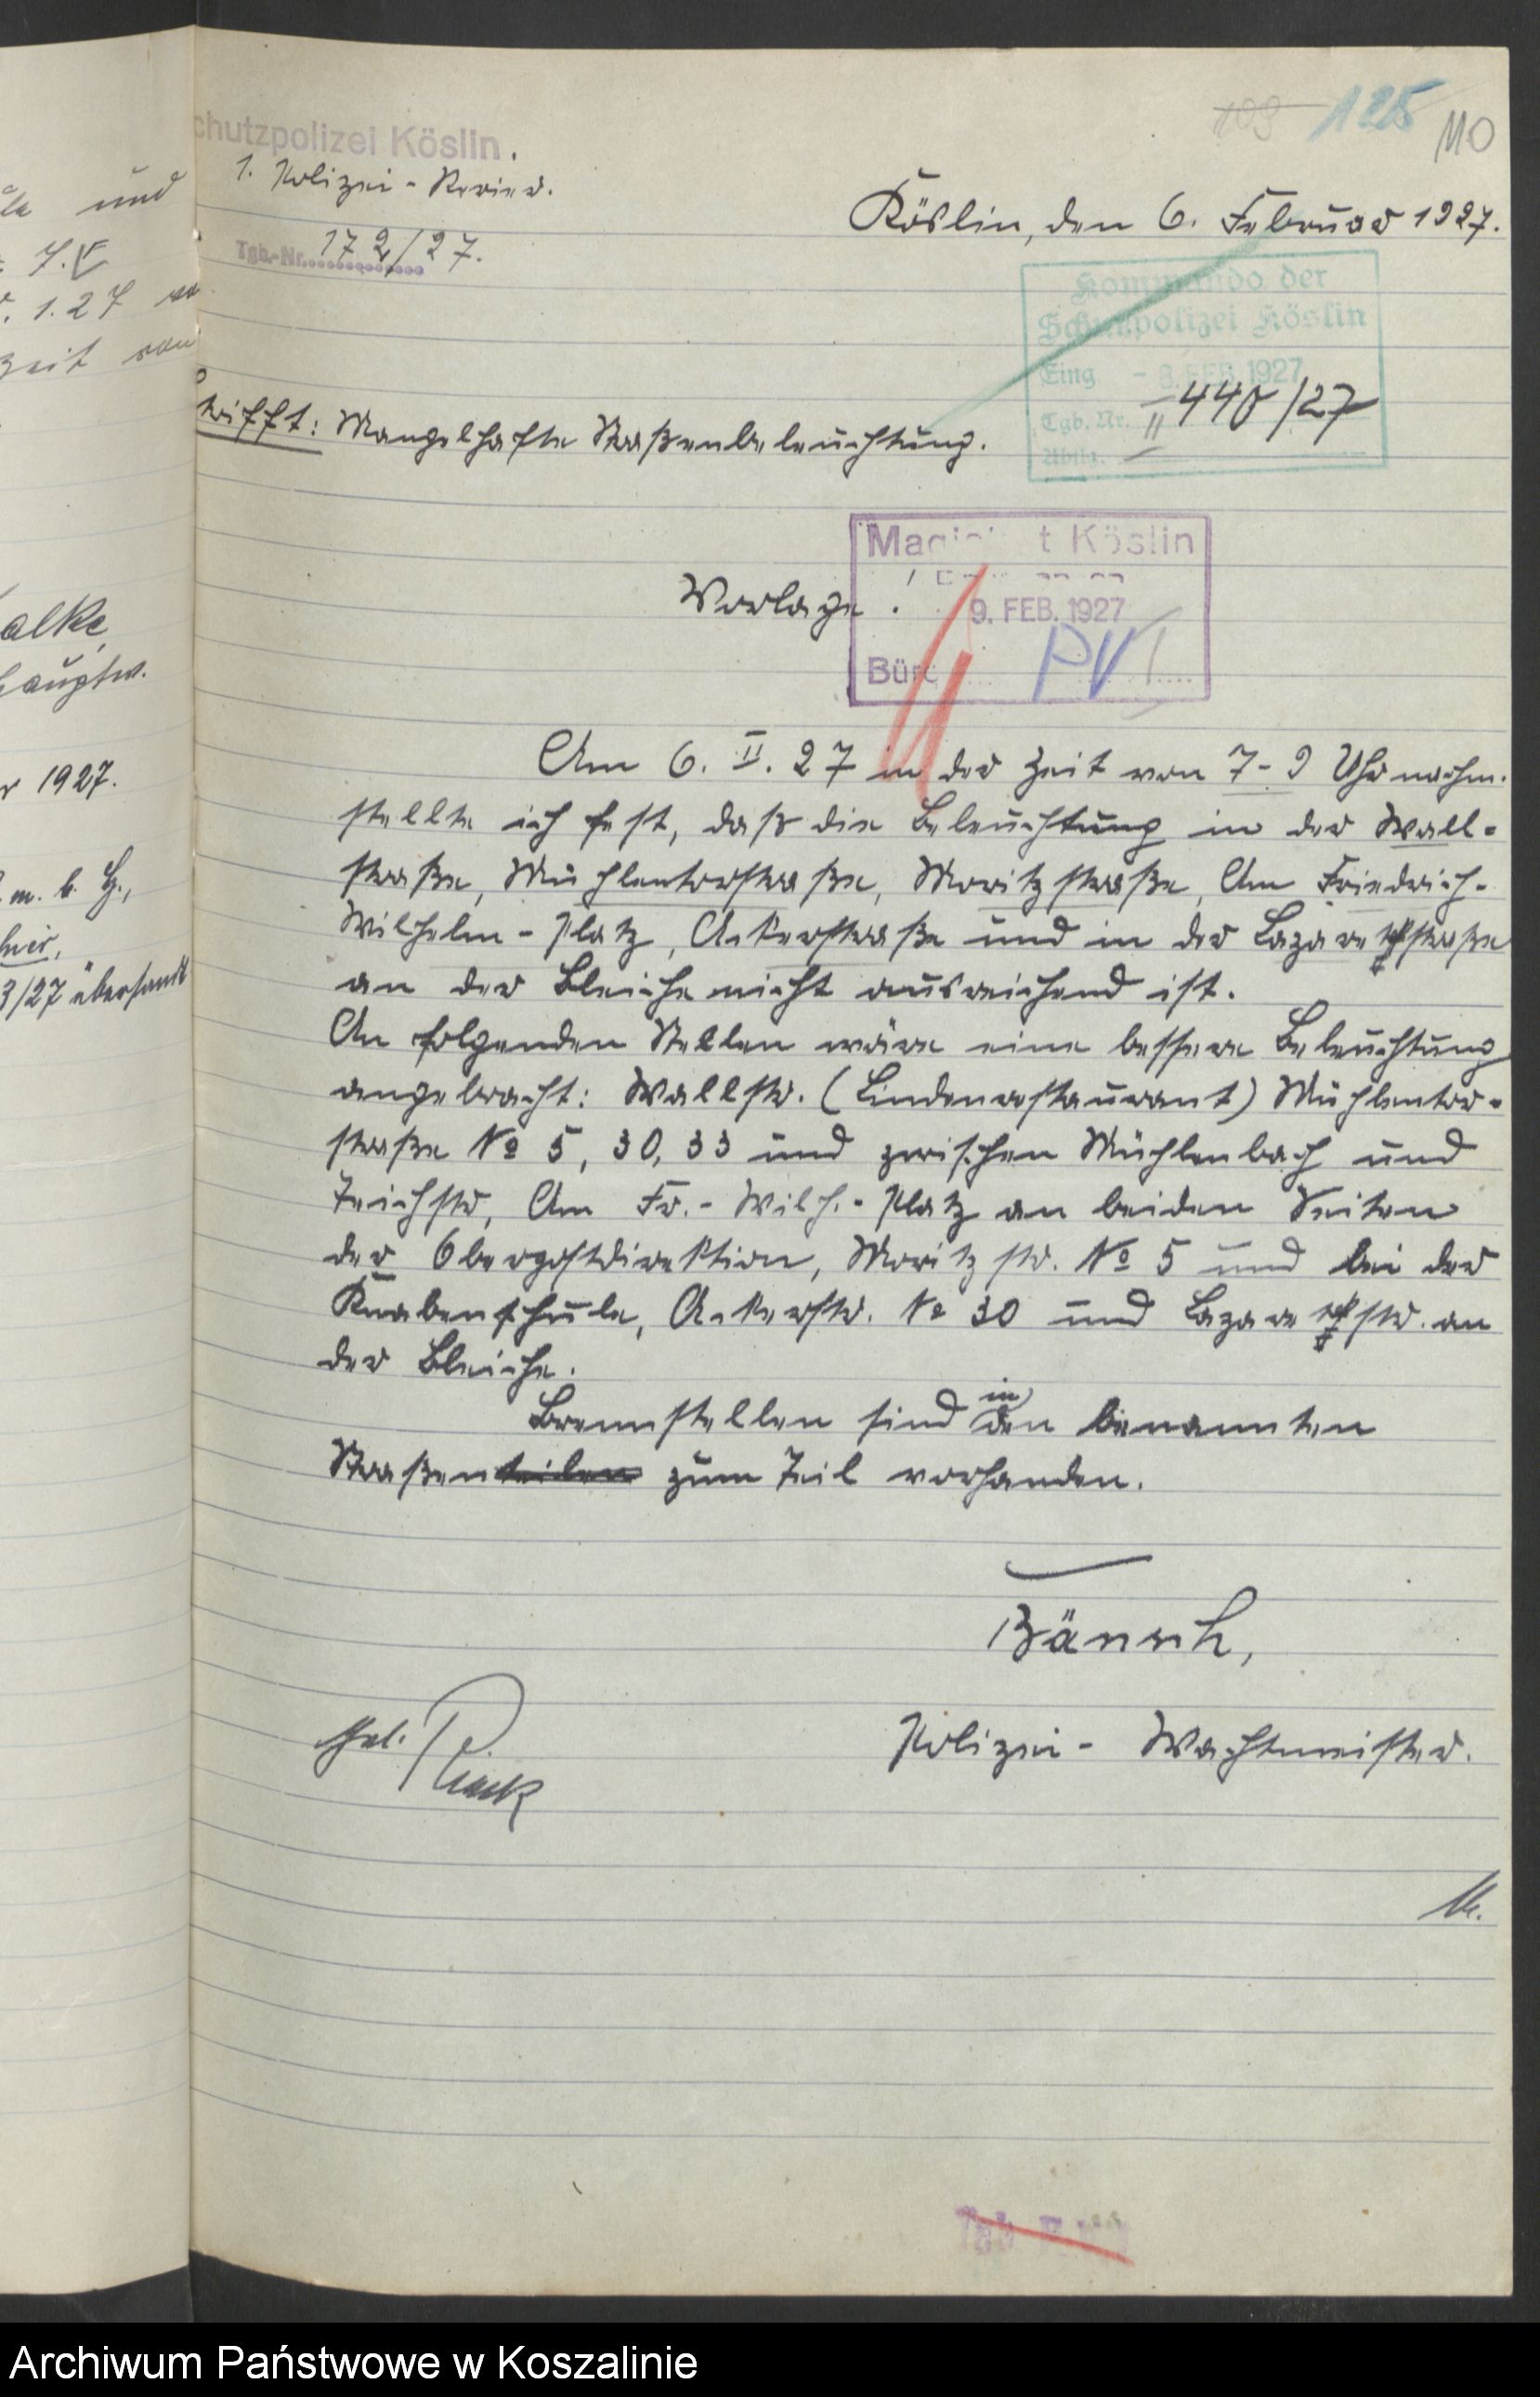 und
7. V
1. 27
Zeit von
alke
hauptw.
r 1927.
m. b. H.,
hier,
3/27 übersandt
109 125 110
chutzpolizei Köslin.
1. Polizei-Revier.
Tgb.-Nr. 172/27.
Köslin, den 6. Februar 1927.
Kommando der
Schutzpolizei Köslin
Eing - 8. FEB. 1927
Tgb. Nr. II 440/27
Abtlg.
trifft: Mangelhafte Straßenbeleuchtung.
Magistrat Köslin
9. FEB. 1927
Büro PVI
Vorlage.
Am 6. II. 27 in der Zeit von 7-9 Uhr nachm.
stellte ich fest, daß die Beleuchtung in der Wall-
straße, Mühlentorstraße, Moritzstraße, Am Friedrich-
Wilhelm-Platz, Ackerstraße und in der Lazarettstraße
an der Bleiche nicht ausreichend ist.
An folgenden Stellen wäre eine bessere Beleuchtung
angebracht: Wallstr. (Lindenrestaurant) Mühlentor-
straße № 5, 30, 33 und zwischen Mühlenbach und
Teichstr, Am Fr.-Wilh.-Platz an beiden Seiten
der Oberpostdirektion, Moritzstr. № 5 und bei der
Knabenschule, Ackerstr. № 30 und Lazarettstr. an
der Bleiche.
Brennstellen sind in den benannten
Straßenteilen zum Teil vorhanden.
Bänsch,
Polizei-Wachtmeister.
Gel.
Archiwum Państwowe w Koszalinie